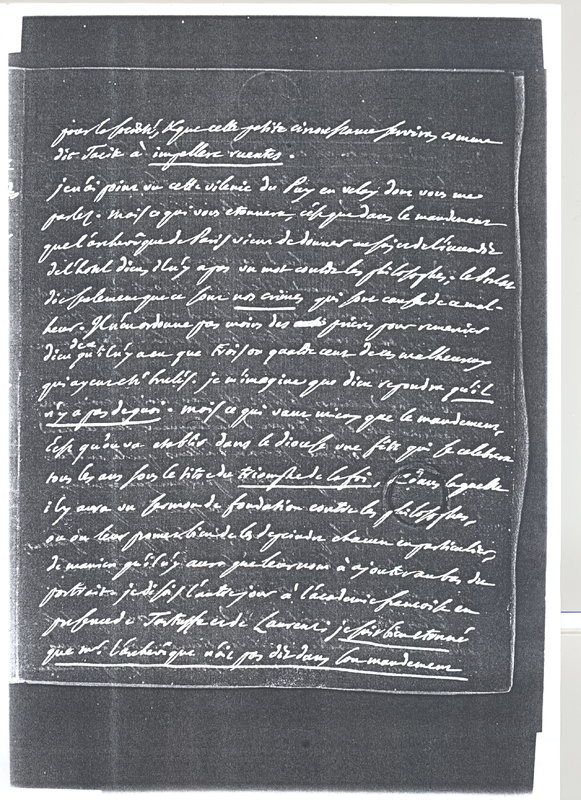 pour le société, & que cette petite circonstance servira, comme
dit Tacite à impellere ruentes.
je n'ai point vu cette vilenie du Puy en velay dont vous me
parlez. mais ce qui vous etonnera, c'est que dans le mandement
que l'archevêque de Paris vient de donner au sujet de l'incendie
de l'hotel dieu, il n'y a pas un mot contre les philosophes; le Prelat
dit seulement que ce sont nos crimes qui sont cause de ce mal-
heur. Il n'en ordonne pas moins des prières pour remercier
dieu de ce qu'il n'y a eu que trois ou quatre cent de ces malheureux
qui ayent été brulés. je m'imagine que dieu repondra qu'il
n'y a pas de quoi. mais ce qui vaut mieux que le mandement,
c'est qu'on va etablir dans le diocese une fête qui se celebrera
tous les ans sous le titre du triomphe de la foi, & dans laquelle
il y aura un sermon de fondation contre les philosophes,
où on leur promet bien de les depeindre chacun en particulier,
de maniere qu'il n'y aura que leur nom à ajouter au bas du
portrait. je disois l'autre jour à l'académie françoise en
presence de Tartuffe et de Laurent, je suis bien etonné
que mr. l'archevêque n'ait pas dit dans son mandement